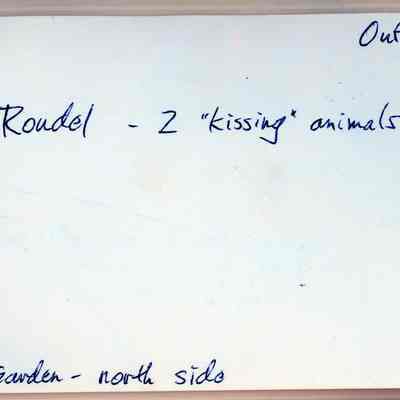 Out
Roudel - 2 "kissing" animals
Garden - north side